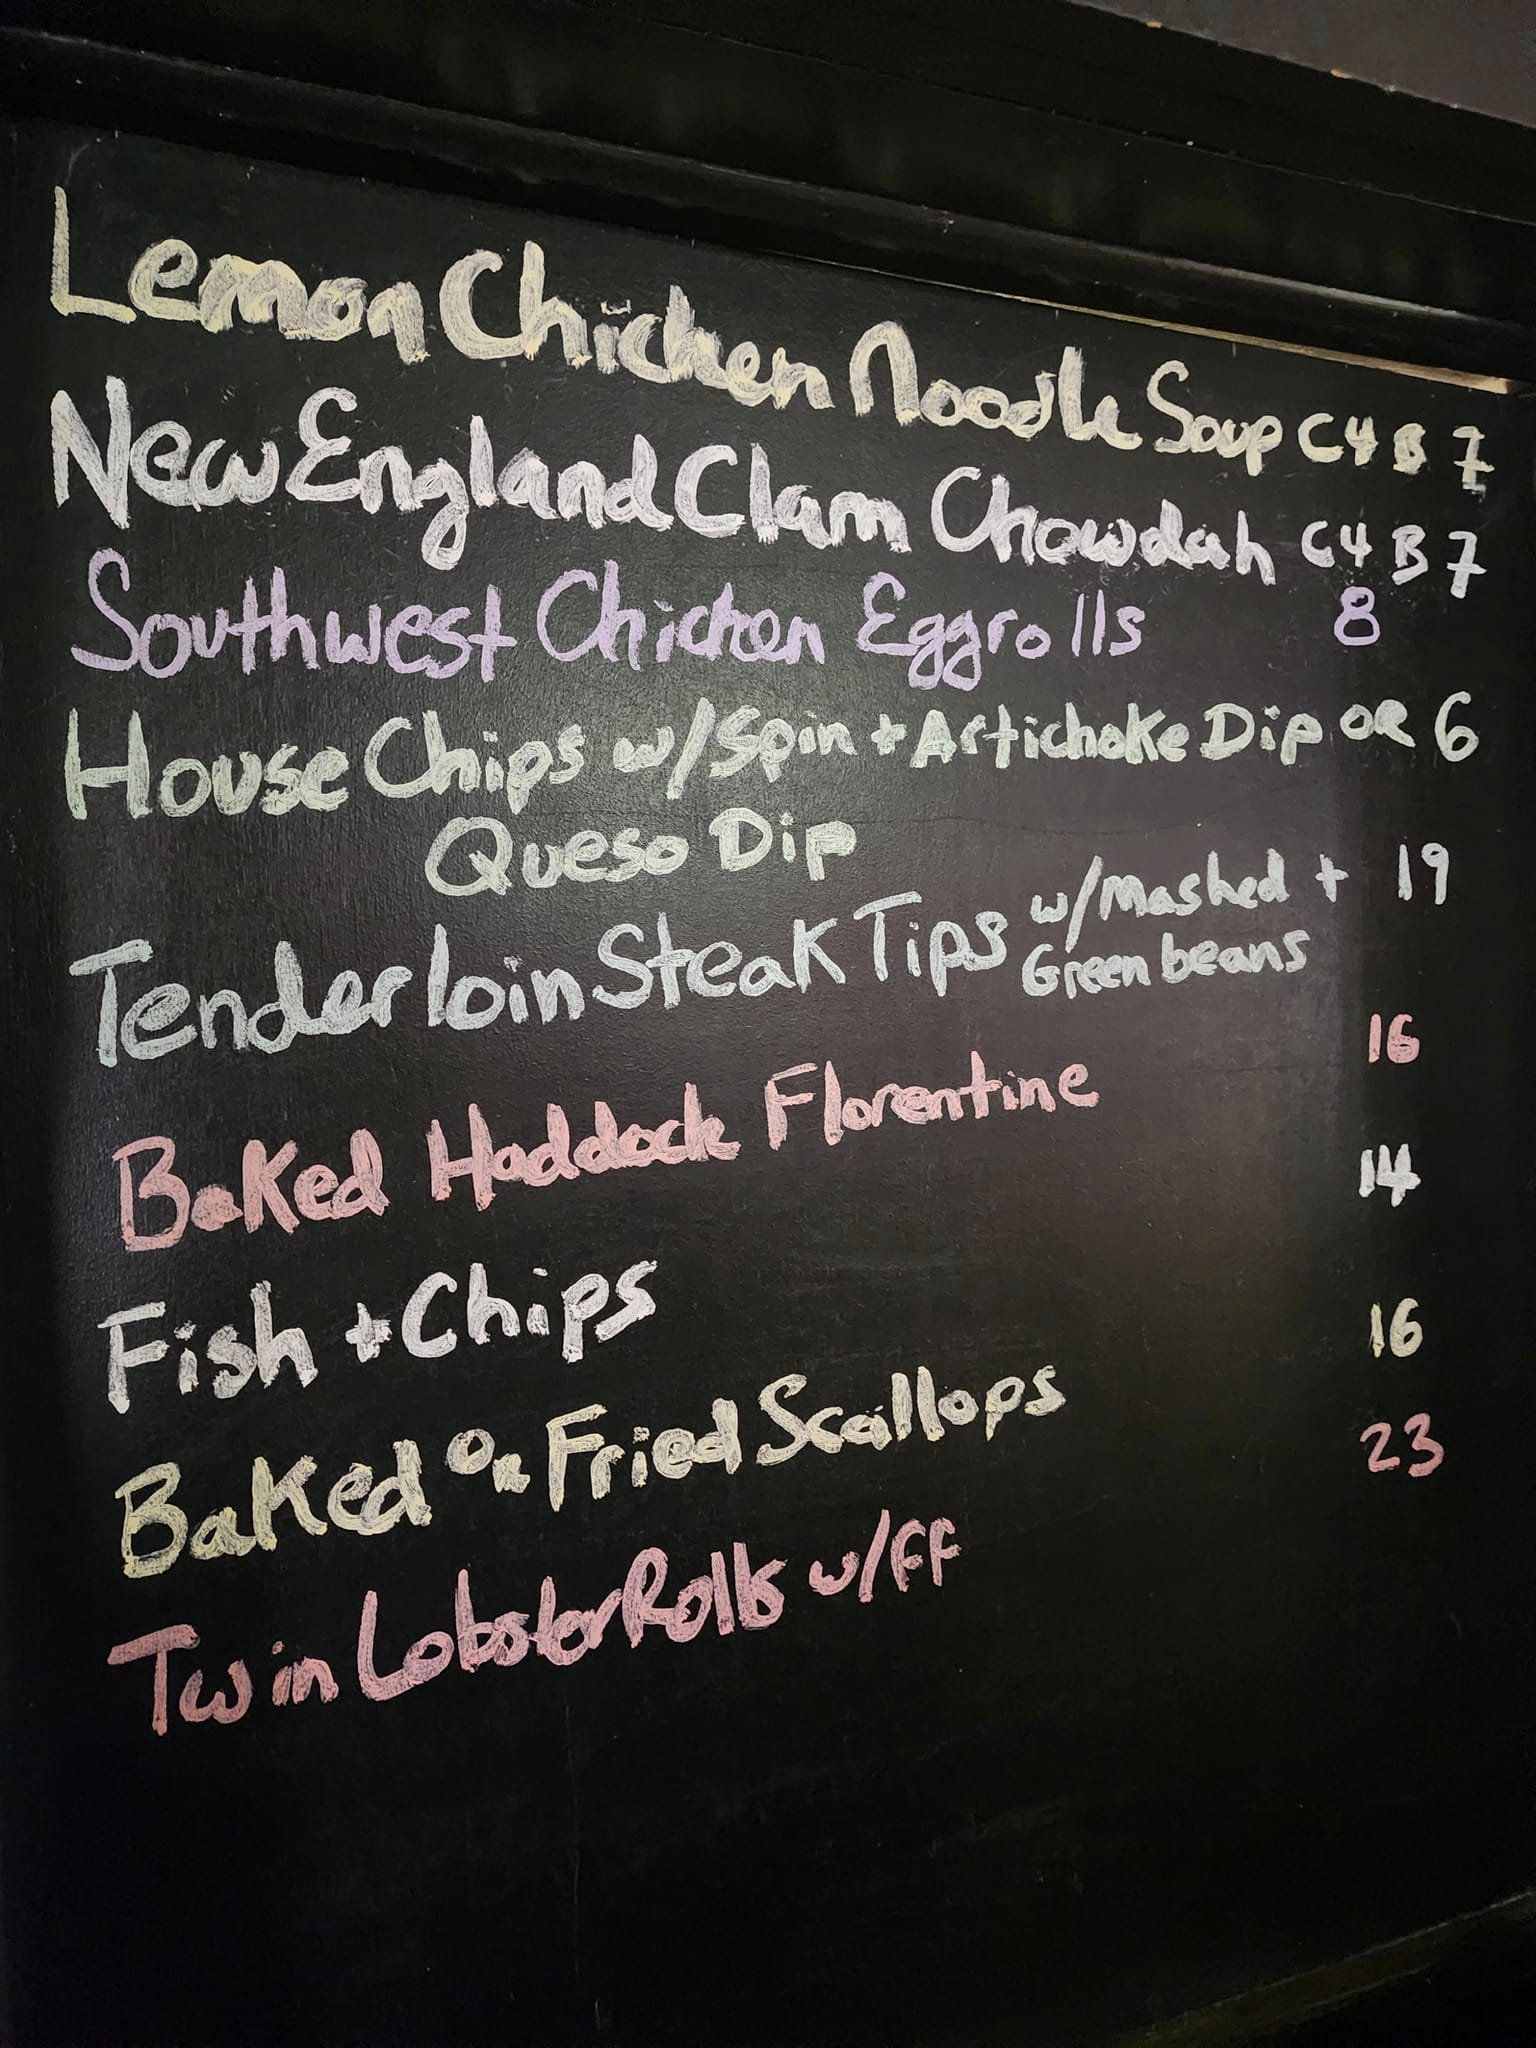 Lemon Chicken Noodle Soup C4 B 7
New England Clam Chowdah C4 B 7
Southwest Chicken Eggrolls 8
House Chips w/Spin + Artichoke Dip OR 6
Queso Dip
Tenderloin Steak Tips w/Mashed + 19
Green beans
Baked Haddock Florentine 16
Fish + Chips 14
Baked OR Fried Scallops 16
Twin Lobster Rolls w/FF 23